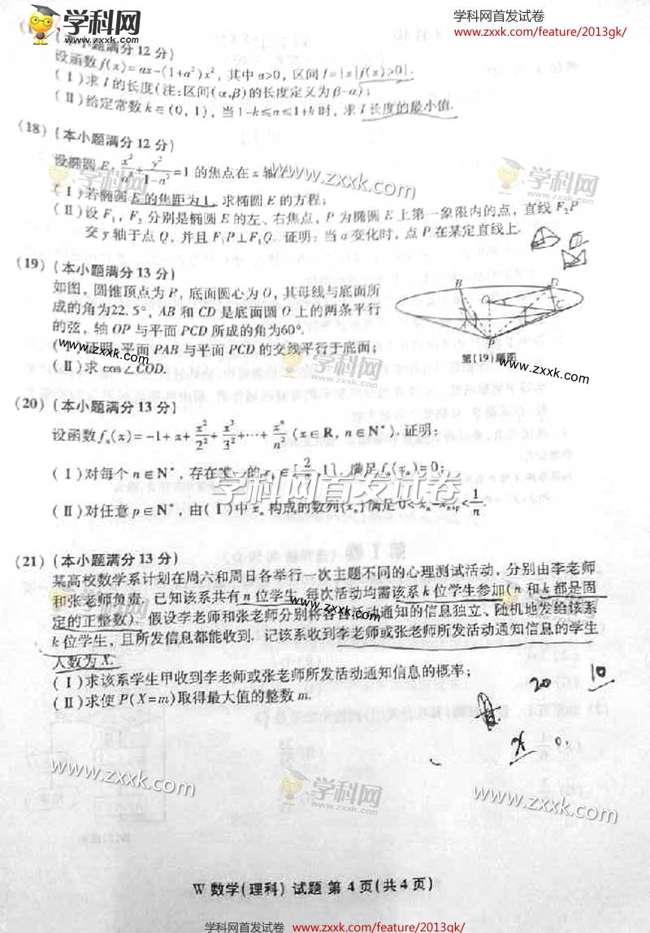 学科网
WWW.ZXXK.COM
学科网首发试卷
www.zxxk.com/feature/2013gk/
(本小题满分12分)
设函数f(x)=ax-(1+a²)x², 其中a>0, 区间I={x|f(x)>0}.
(Ⅰ)求I的长度(注:区间(α,β)的长度定义为β-α);
(Ⅱ)给定常数k∈(0,1), 当1-k≤a≤1+k时, 求I长度的最小值.
(18) (本小题满分12分)
设椭圆E: x²/a²+y²/(1-a²)=1的焦点在x轴
www.zxxk.com
学科网
(Ⅰ)若椭圆E的焦距为1, 求椭圆E的方程;
(Ⅱ)设F₁, F₂分别是椭圆E的左、右焦点, P为椭圆E上第一象限内的点, 直线F₂P
交y轴于点Q, 并且F₁P⊥F₁Q. 证明: 当a变化时, 点P在某定直线上.
(19) (本小题满分13分)
如图, 圆锥顶点为P, 底面圆心为O, 其母线与底面所
成的角为22.5°, AB和CD是底面圆O上的两条平行
的弦, 轴OP与平面PCD所成的角为60°.
证明: 平面PAB与平面PCD的交线平行于底面;
(Ⅱ)求cos∠COD.
www.zxxk.com
学科网
B
D
O
C
第(19)题图
www.zxxk.com
(20) (本小题满分13分)
设函数fₙ(x)=-1+x+x²/2²+x³/3²+…+xⁿ/n² (x∈R, n∈N*). 证明:
(Ⅰ)对每个n∈N*, 存在唯一的xₙ∈[2/3,1], 满足fₙ(xₙ)=0;
学科网首发试卷
(Ⅱ)对任意p∈N*, 由(Ⅰ)中xₙ构成的数列{xₙ}满足0<xₙ-xₙ₊ₚ<1/n.
(21) (本小题满分13分)
某高校数学系计划在周六和周日各举行一次主题不同的心理测试活动, 分别由李老师
和张老师负责. 已知该系共有n位学生, 每次活动均需该系k位学生参加(n和k都是固
定的正整数). 假设李老师和张老师分别将各自活动通知的信息独立、随机地发给该系
k位学生, 且所发信息都能收到. 记该系收到李老师或张老师所发活动通知信息的学生
人数为X.
www.zxxk.com
(Ⅰ)求该系学生甲收到李老师或张老师所发活动通知信息的概率;
(Ⅱ)求使P(X=m)取得最大值的整数m.
20 10
www.zxxk.com
学科网
www.zxxk.com
W数学(理科) 试题 第4页(共4页)
学科网首发试卷
www.zxxk.com/feature/2013gk/